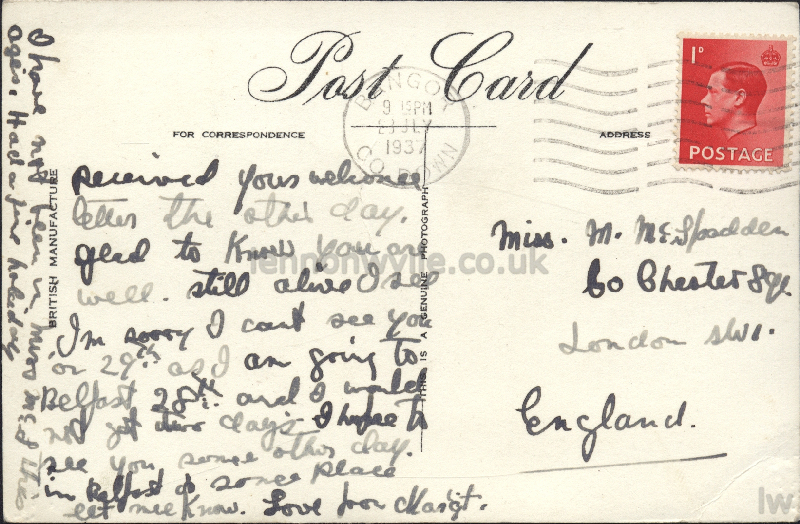 Post Card
BANGOR
9 15PM
23 JLY
1937
CO. DOWN
1D
POSTAGE
FOR CORRESPONDENCE
ADDRESS
BRITISH MANUFACTURE
THIS IS A GENUINE PHOTOGRAPH
received your welcome
letter the other day.
glad to know you are
well. still alive I see
I'm sorry I cant see you
on 29th as I am going to
Belfast 28th. and I would
not get two days I hope to
see you some other day.
in Belfast or some place
let me know. Love from Margt.
I have not been in Miss McD this
ages. Had a fine holiday
Miss. M. McSpadden
60 Chester Sqe
London SW1.
England.
lennonwylie.co.uk
lw